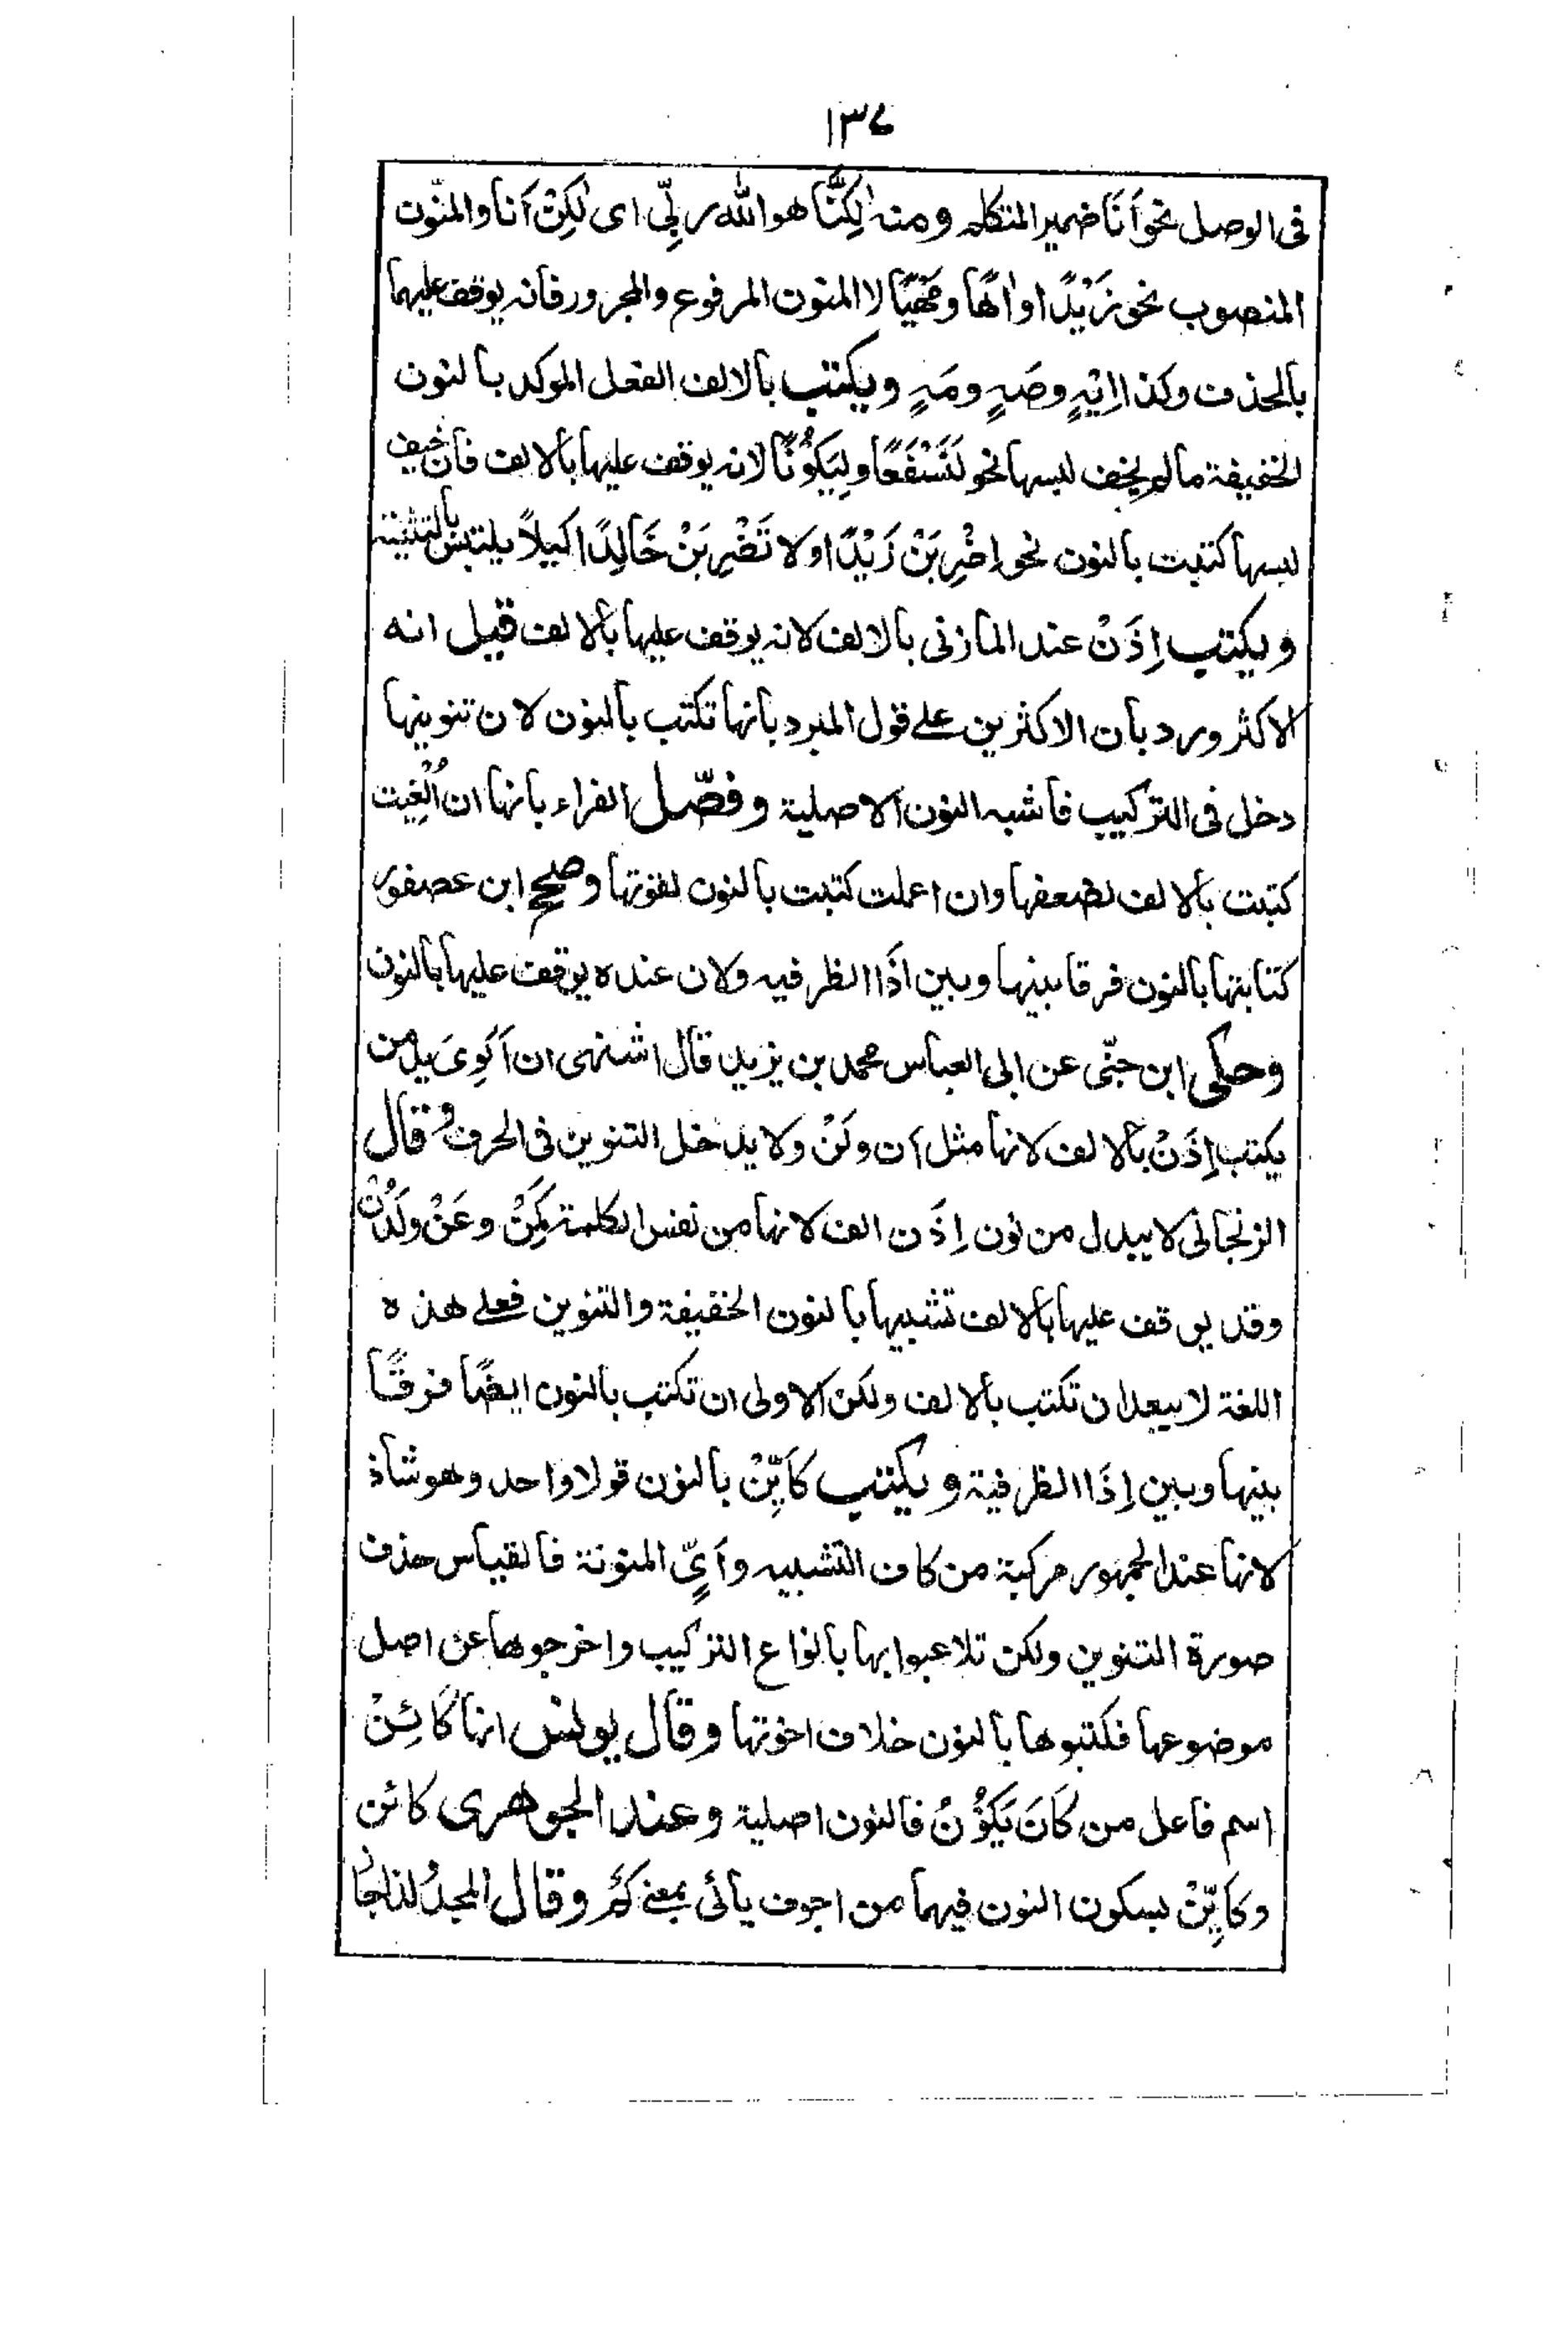 ١٣٧
فى الوصل نحو اَنَا ضمير المتكلم ومنه لٰكِنَّا هو الله ربِّى اى لٰكِنْ اَنَا والمنّون
المنصوب نحو زَيْدًا وَاهًا و مَهْيًا لا المنون المرفوع والمجرور فانه يوقف عليهما
بالحذف وكذا اِيْهٍ وصَهٍ ومَهٍ ويكتب بالالف الفعل الموكد بالنون
الخفيفة مالم يخف لبسها نحو لَنَسْفَعًا ولِيَكُوْنًا لانه يوقف عليها بالالف فان خيف
لبسها كتبت بالنون نحو اِضْرِبَنْ زَيْدًا ولا تَضْرِبَنْ خَالِدًا كيلاً يلتبس بالتثنية
ويكتب اِذَنْ عند المازنى بالالف لانه يوقف عليها بالالف قيل انه
الاكثر ورد بأن الاكثرين على قول المبرد بانها تكتب بالنون لان تنوينها
دخل فى التركيب فاشبه النون الاصلية وفصّل الفراء بانها ان اُلْغِيت
كتبت بالالف لضعفها وان اعملت كتبت بالنون لقوتها وصحح ابن عصفور
كتابتها بالنون فرقا بينها وبين اذَا الظرفيه ولان عنده يوقف عليها بالنون
وحكى ابن جنّى عن ابى العباس محمد بن يزيد قال اشتهى ان اَكْوِىَ يد من
يكتب اِذَنْ بالالف لانها مثل اَن ولَنْ ولا يدخل التنوين فى الحرف وقال
الزنجانى لا يبدل من نون اِذَن الف لانها من نفس الكلمة كَمِنْ وعَنْ ولَدُنْ
وقد يوقف عليها بالالف تشبيها بالنون الخفيفة والتنوين فعلى هذه
اللغة لا يبعد ان تكتب بالالف ولكن الاولى ان تكتب بالنون ايضًا فرقًا
بينها وبين اِذَا الظرفية ويكتب كَاَيِّنْ بالنون قولا واحد وهو شاذ
لانها عند الجمهور مركبة من كاف التشبيه وَاَىٍّ المنونة فالقياس حذف
صورة التنوين ولكن تلاعبوا بها بانواع التركيب واخرجوها عن اصل
موضوعها فكتبوها بالنون خلاف اخوتها وقال يونس انها كَائِنْ
اسم فاعل من كَانَ يَكُوْنُ فالنون اصلية وعند الجوهرى كائن
وكَاَيِّنْ بسكون النون فيهما من اجوف يائى بمعنى كَمْ وقال المجدُ